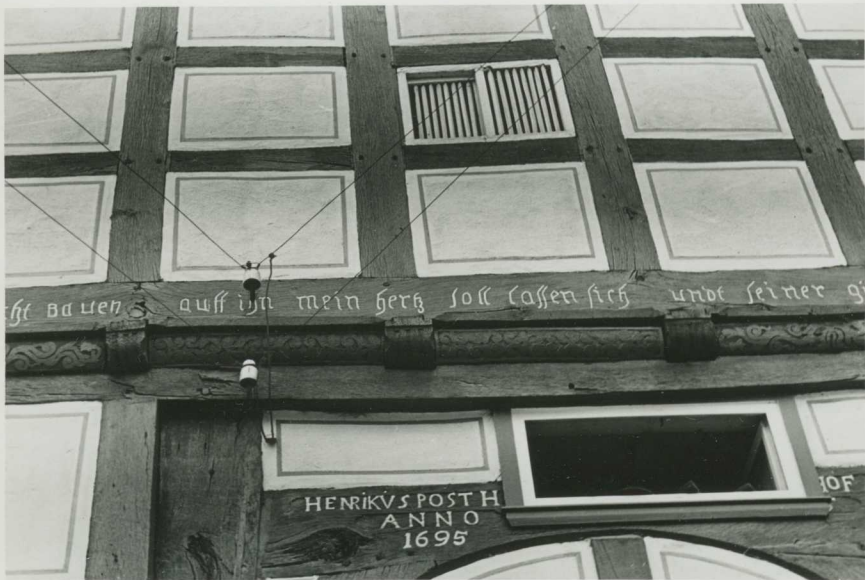 cht Bauen auff ihn mein hertz soll lassen sich undt seiner g
HENRIKVS POST H
ANNO
1695
HOF